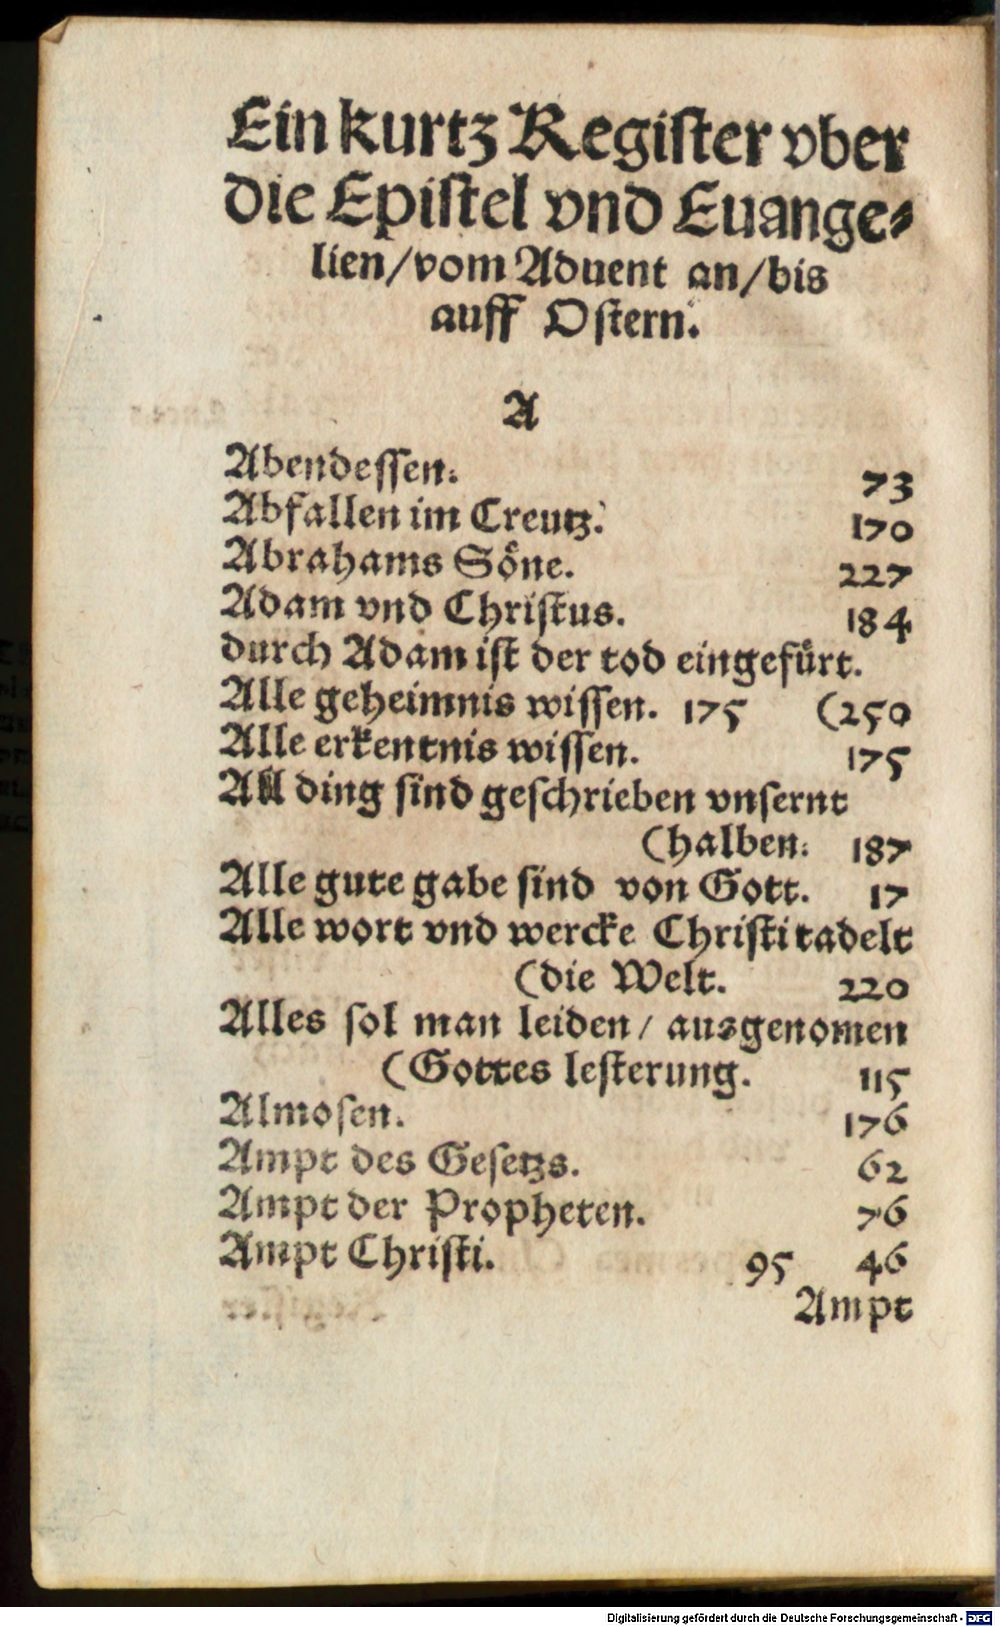 Ein kurtz Regiſter vber
die Epiſtel vnd Euange⸗
lien/vom Aduent an/bis
auff Oſtern.
A
Abendeſſen. 73
Abfallen im Creutz. 170
Abrahams Soͤne. 227
Adam vnd Chriſtus. 184
durch Adam iſt der tod eingefuͤrt.
Alle geheimnis wiſſen. 175 (250
Alle erkentnis wiſſen. 175
All ding ſind geſchrieben vnſernt
(halben. 187
Alle gute gabe ſind von Gott. 17
Alle wort vnd wercke Chriſti tadelt
(die Welt. 220
Alles ſol man leiden/ ausgenomen
(Gottes leſterung. 115
Almoſen. 176
Ampt des Geſetzs. 62
Ampt der Propheten. 76
Ampt Chriſti. 95 46
Ampt
Digitalisierung gefördert durch die Deutsche Forschungsgemeinschaft - DFG